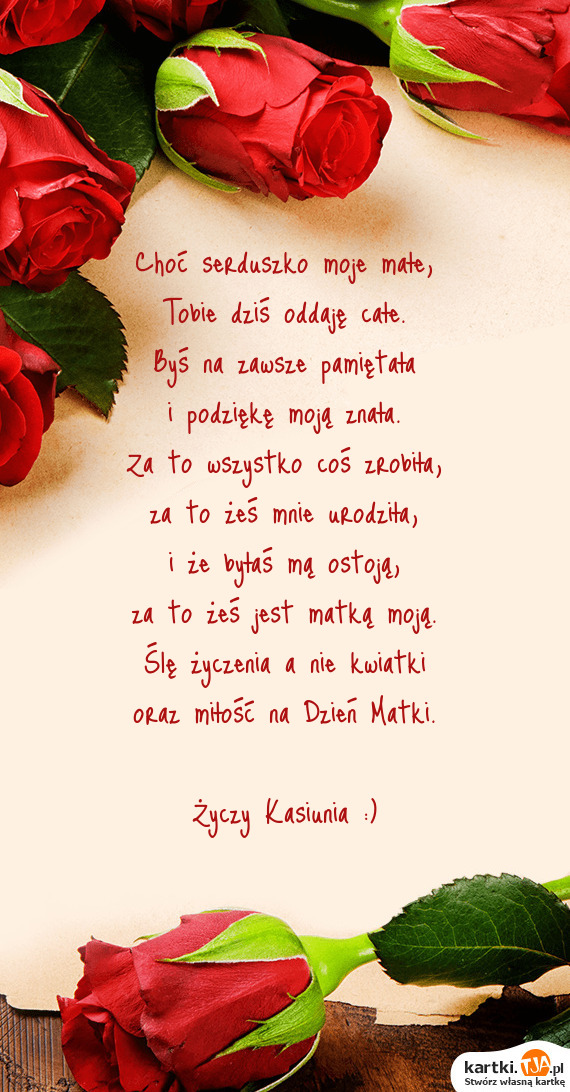 Choć serduszko moje małe,
Tobie dziś oddaję całe.
Byś na zawsze pamiętała
i podziękę moją znała.
Za to wszystko coś zrobiła,
za to żeś mnie urodziła,
i że byłaś mą ostoją,
za to żeś jest matką moją.
Ślę życzenia a nie kwiatki
oraz miłość na Dzień Matki.
Życzy Kasiunia :)
kartki.TJA.pl
Stwórz własną kartkę